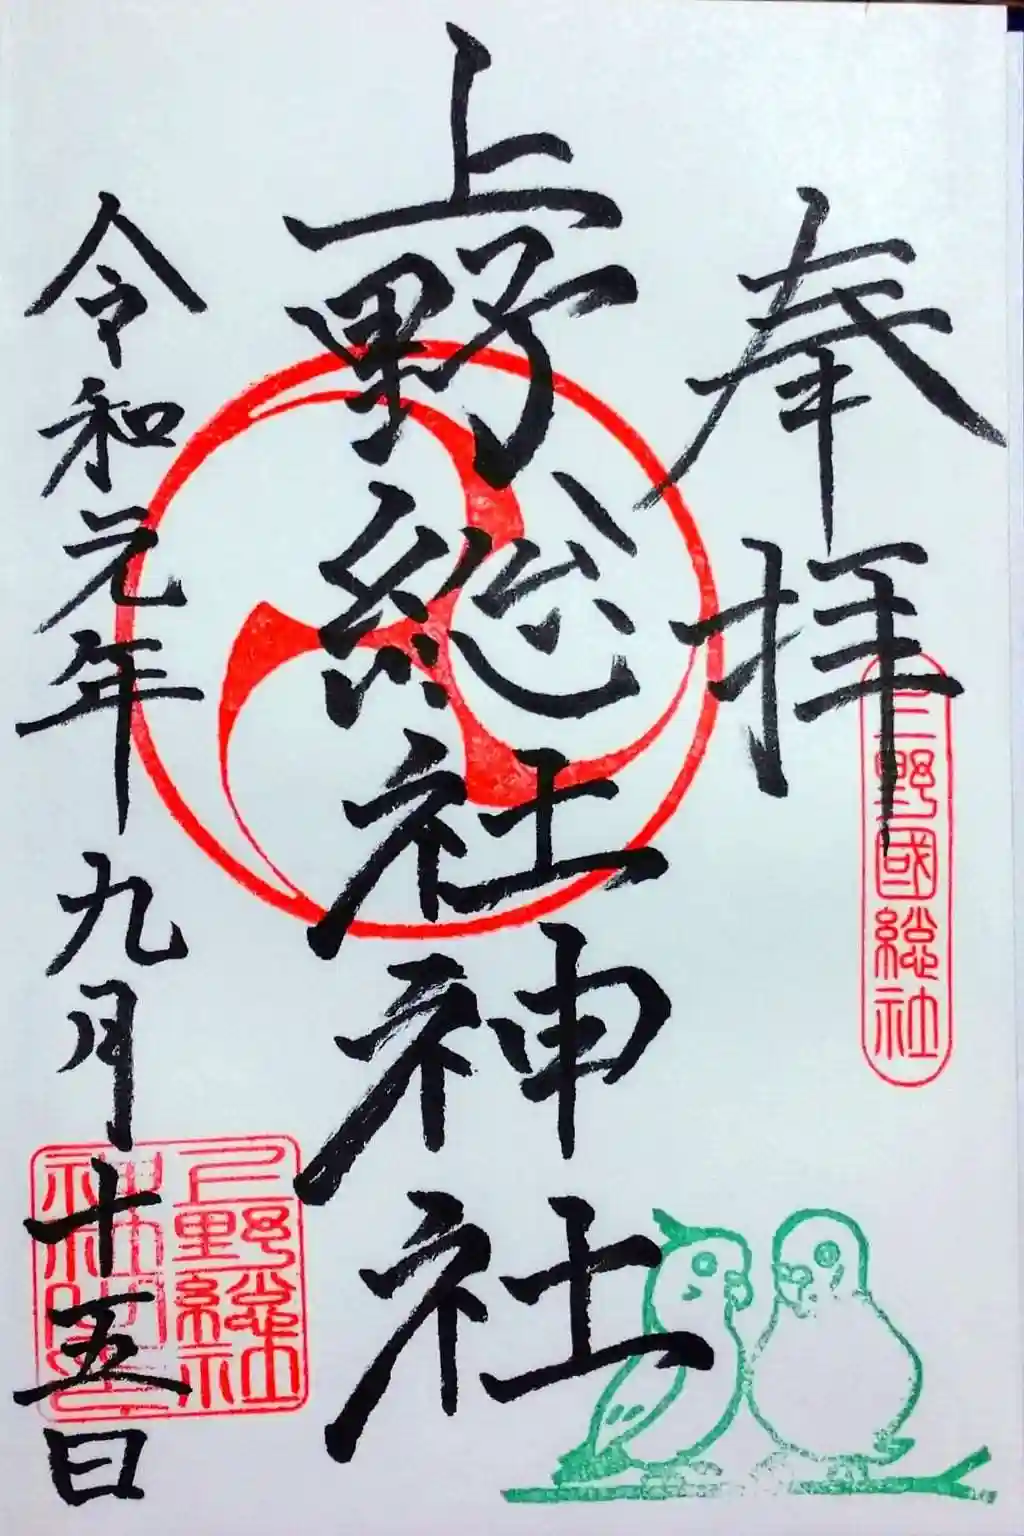 奉拝
上野國総社
上野総社神社
令和元年九月十五日
上野総社
神社